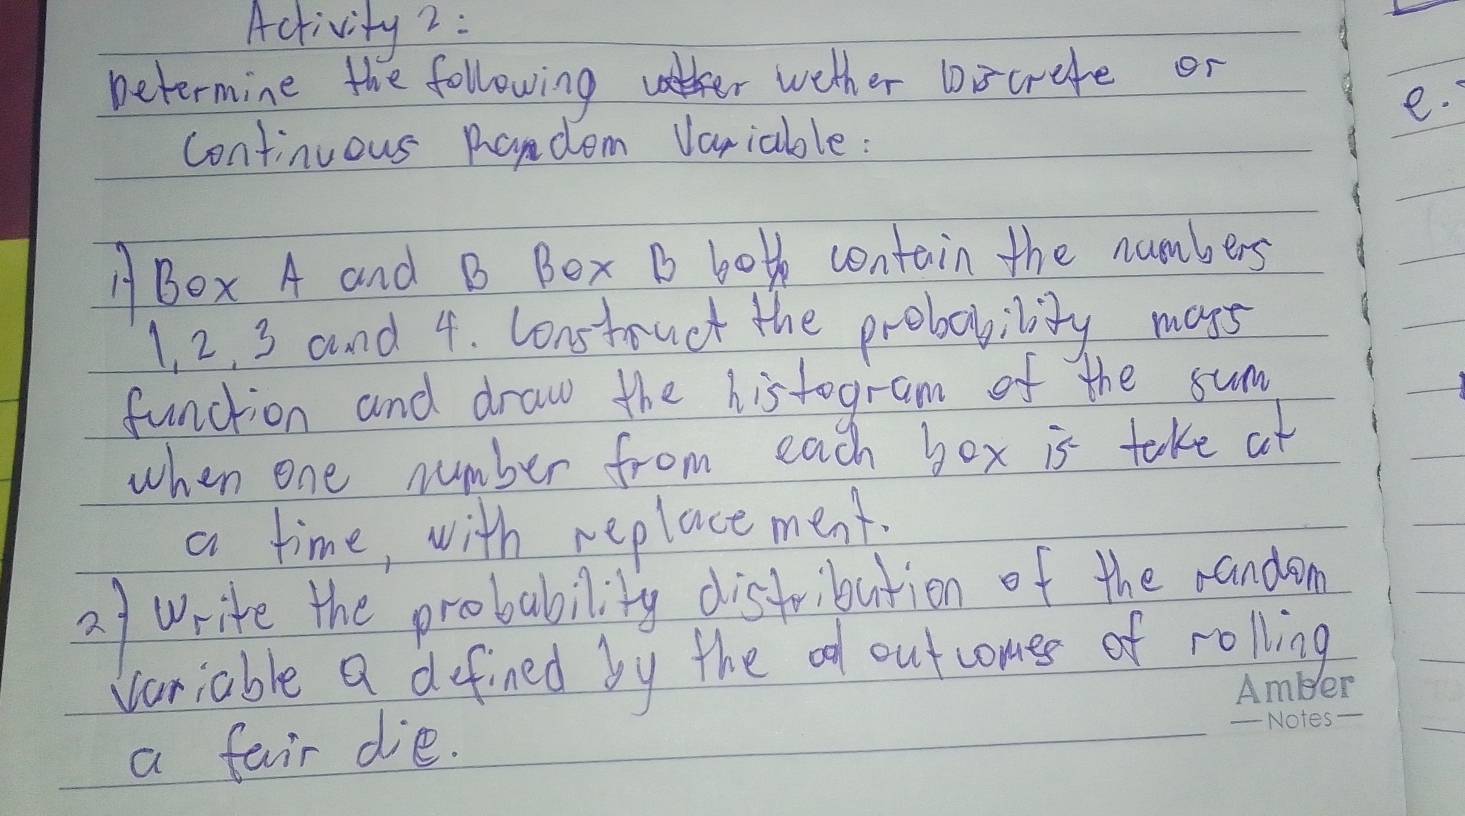 Activity 2:
Determine the following wether Discrete or
Continuous Random Variable:
e.
1) Box A and B Box B both contain the numbers
1, 2, 3 and 4. Construct the probability mass
function and draw the histogram of the sum
when one number from each box is take at
a time, with replacement.
2) Write the probability distribution of the random
variable Q defined by the outcomes of rolling
a fair die.
Amber
Notes